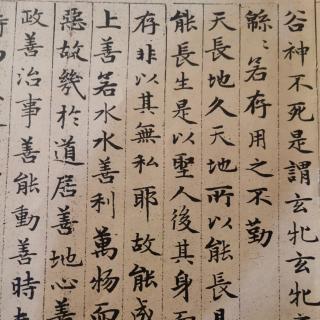 谷神不死是謂玄牝玄牝之
緜緜若存用之不勤
天長地久天地所以能長且
能長生是以聖人後其身而
存非以其無私耶故能成
上善若水水善利萬物而
惡故幾於道居善地心善
政善治事善能動善時